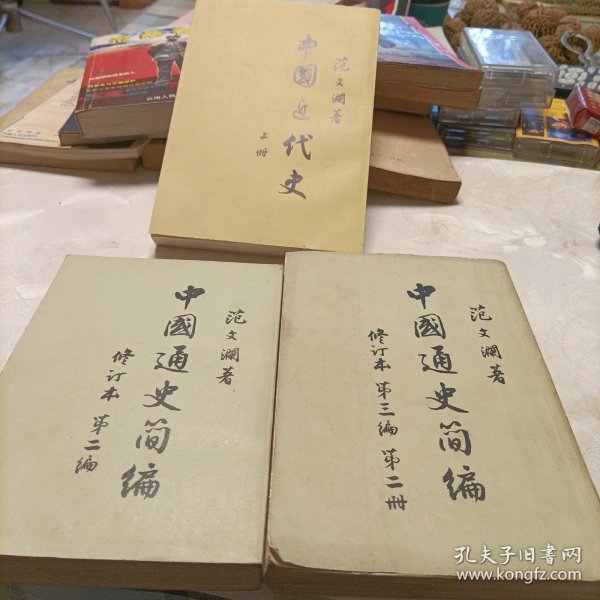 中國近代史
上册
范文瀾著
中國通史简编
修订本 第二编
范文瀾著
中國通史简编
修订本 第三编 第二册
范文瀾著
云南人民
孔夫子旧书网
www.kongfz.com